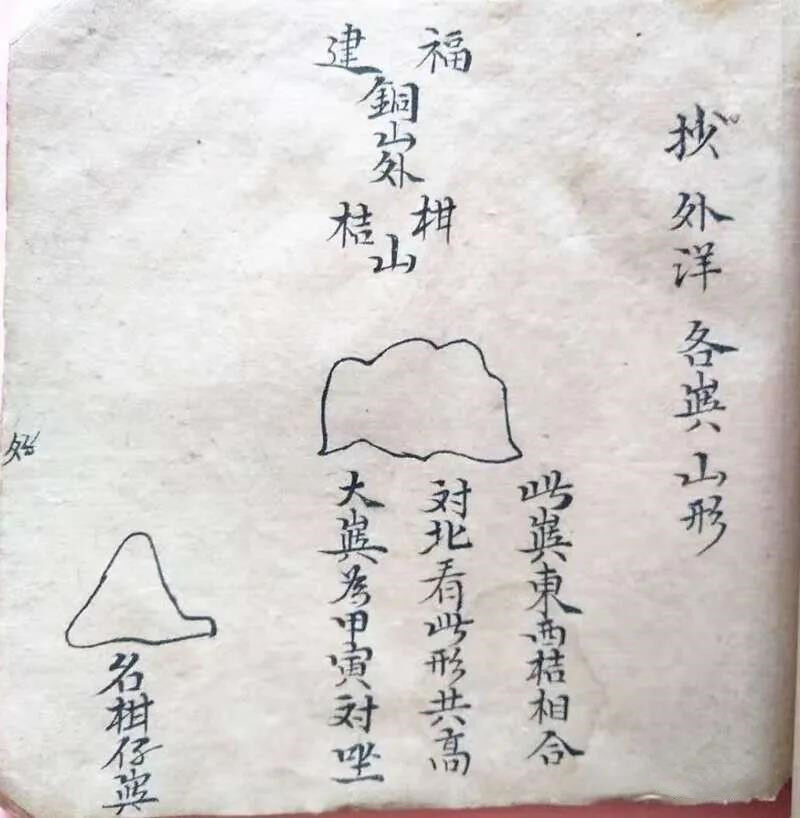 抄外洋各嶼山形
福建
銅山外
柑桔
山
此嶼東西桔相合
対北看此形共高
大嶼為甲寅対坐
名柑仔嶼